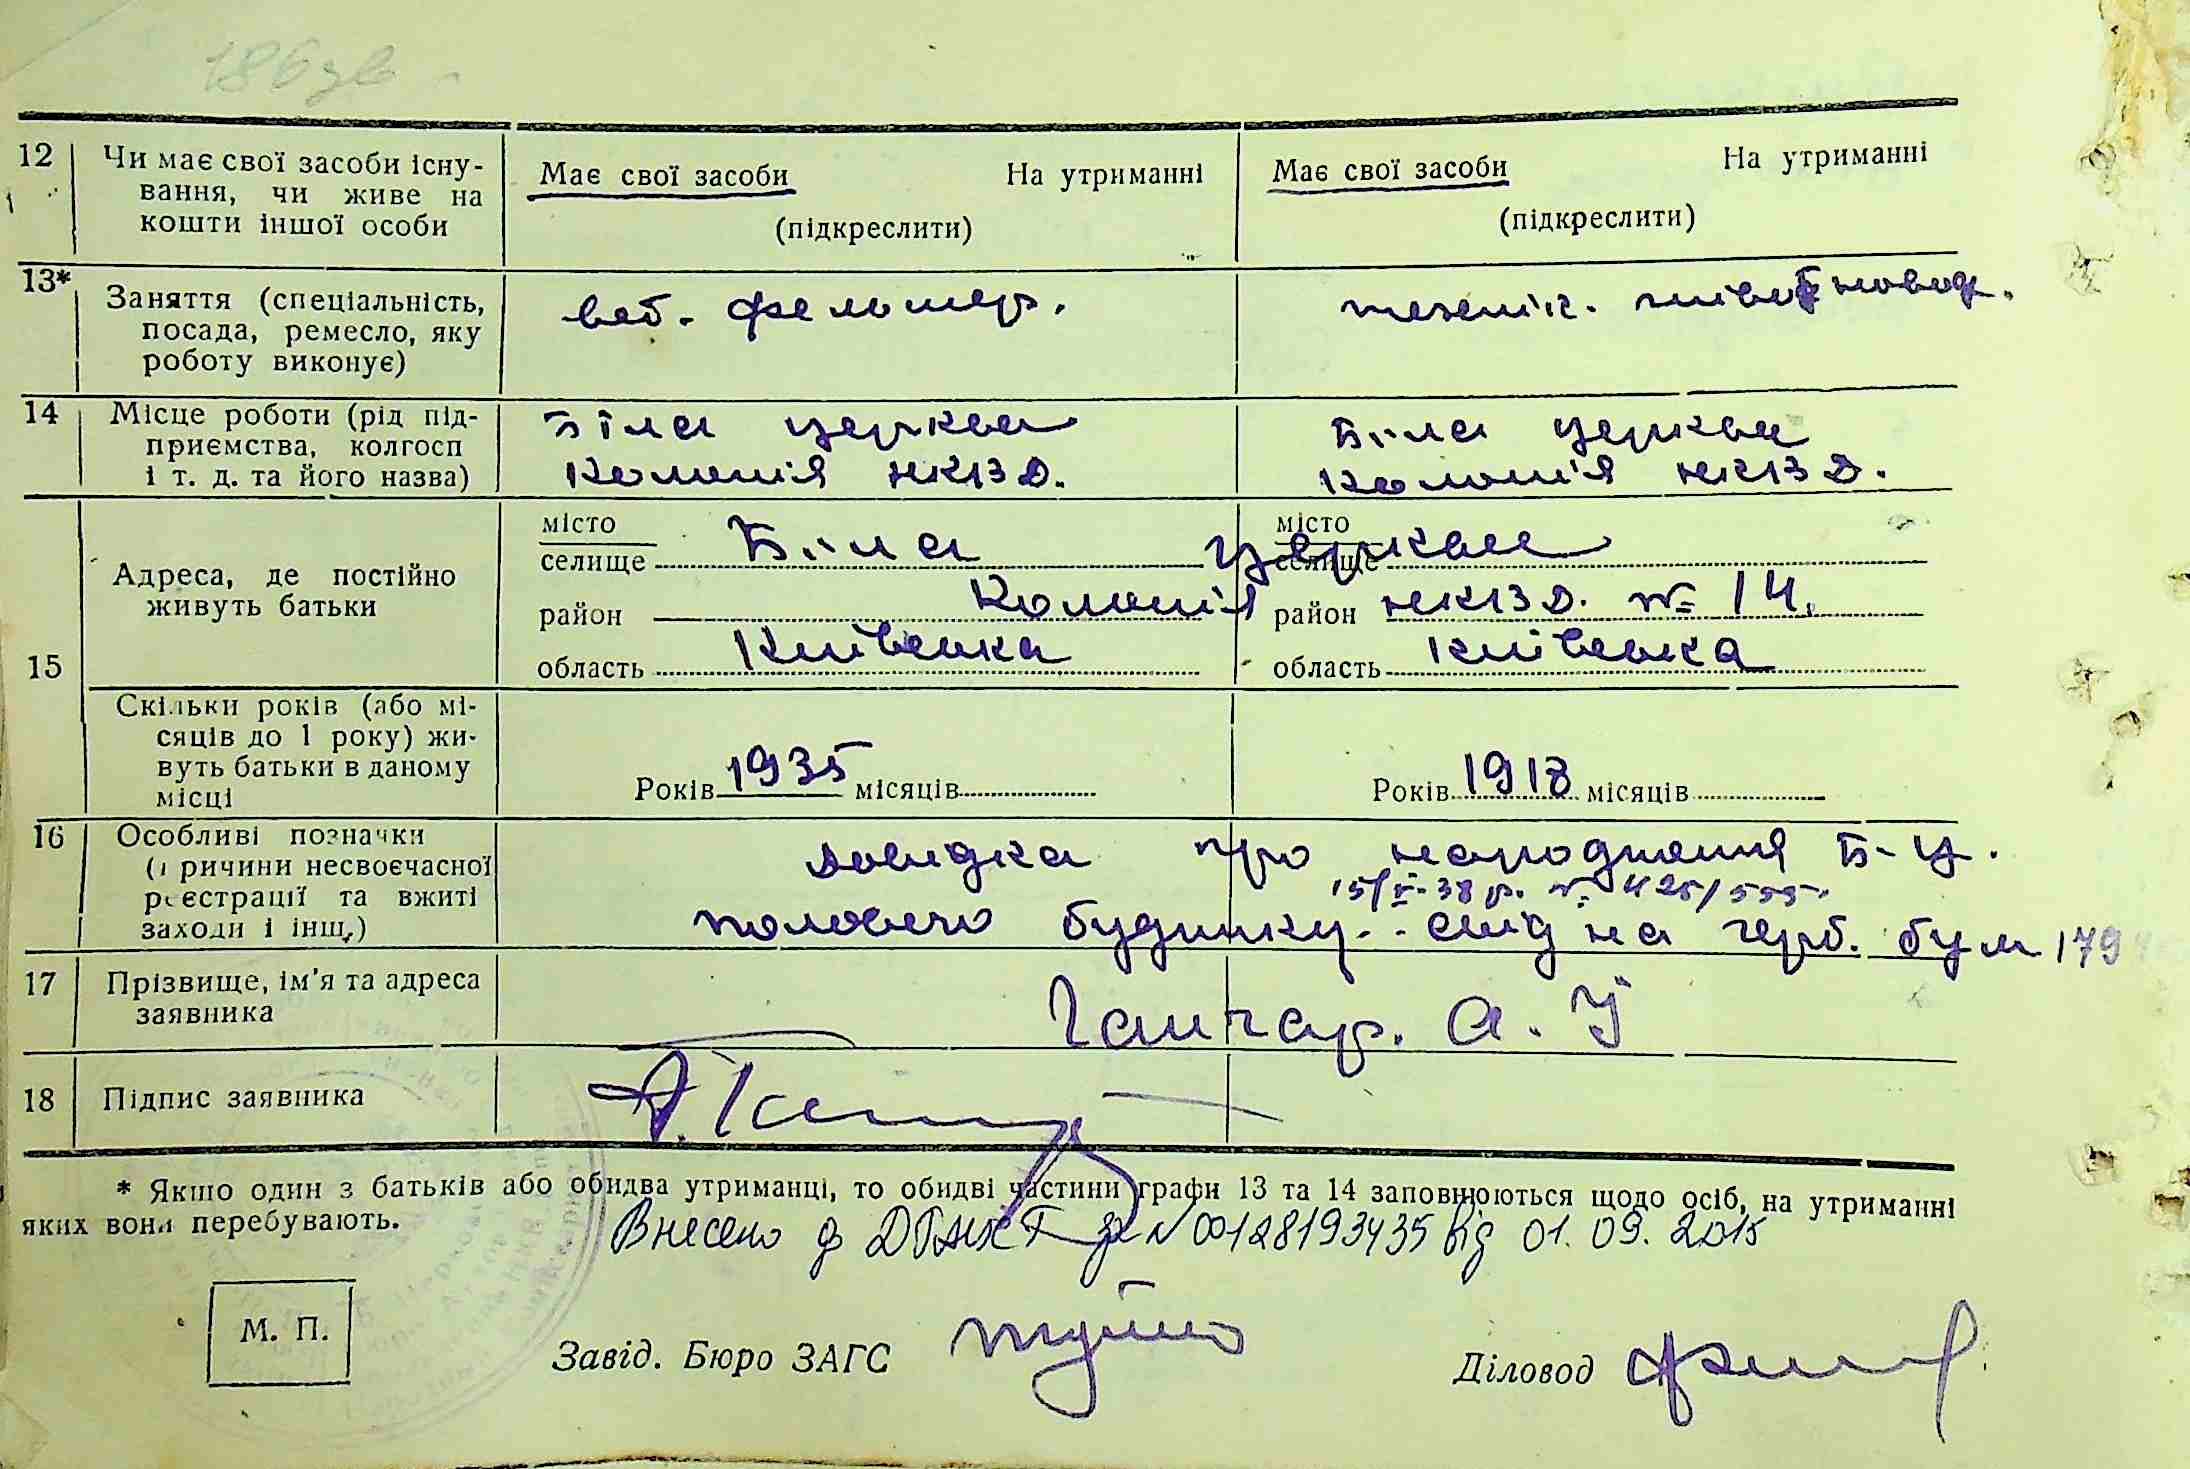 186 зв
12 Чи має свої засоби існу-
вання, чи живе на
кошти іншої особи
Має свої засоби На утриманні
(підкреслити)
Має свої засоби На утриманні
(підкреслити)
13* Заняття (спеціальність,
посада, ремесло, яку
роботу виконує)
вет. фельшер.
технік.
14 Місце роботи (рід під-
приємства, колгосп
і т. д. та його назва)
Біла церква
Колонія НКЗД.
Біла церква
Колонія НКЗД.
15 Адреса, де постійно
живуть батьки
місто
селище Біла церква
район Колонія
область Київська
місто
селище
район НКЗД. № 14.
область Київська
Скільки років (або мі-
сяців до 1 року) жи-
вуть батьки в даному
місці
Років 1935 місяців
Років 1918 місяців
16 Особливі позначки
(причини несвоєчасної
реєстрації та вжиті
заходи і інш.)
довидка про народження Б-Ц.
15/V-38 р. № 425/555
пологого будинку. на герб. бум 179
17 Прізвище, ім'я та адреса
заявника
Ганчар. А. І
18 Підпис заявника
* Якщо один з батьків або обидва утриманці, то обидві частини графи 13 та 14 заповнюються щодо осіб, на утриманні
яких вони перебувають.
Внесено до ДРАЦСГ за № 00128193435 від 01.09.2015
М. П.
Завід. Бюро ЗАГС
Діловод